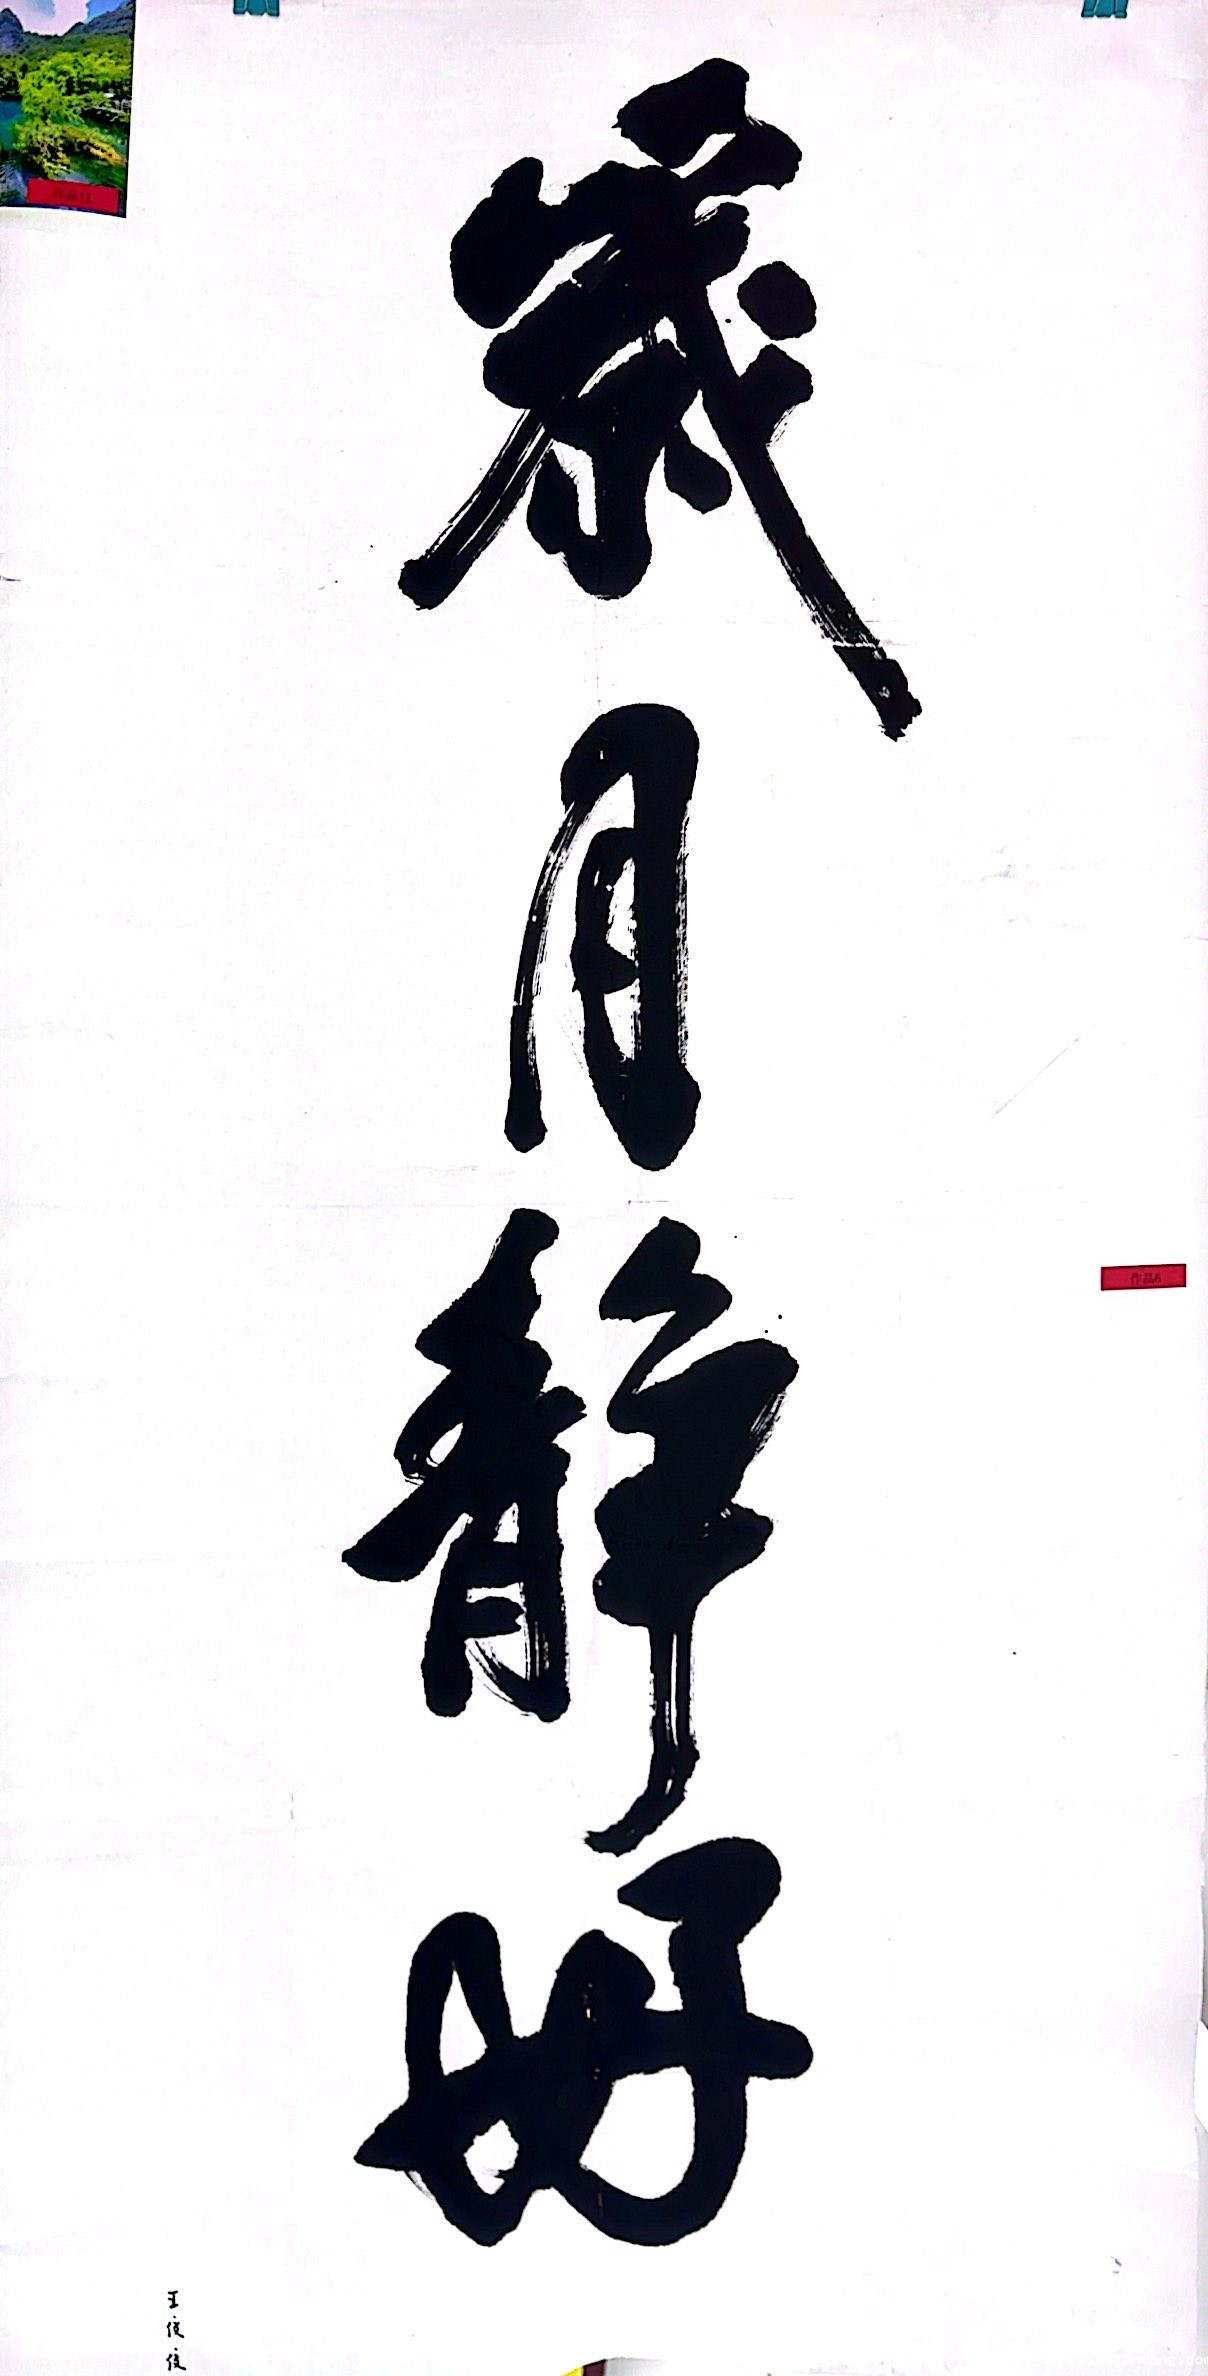 歲月靜好
王俊俊
作品11
作品6